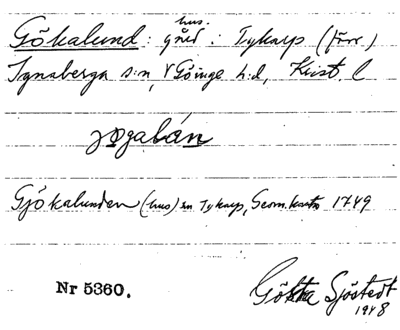 hus.
Gökalund: gård: Tykarp (förr)
Ignaberga s:n, V Göinge h:d, Krist. l
Gjökalunden (hus) en Tykarp, Geom. karta 1749
Nr 5360.
Gösta Sjöstedt
1948